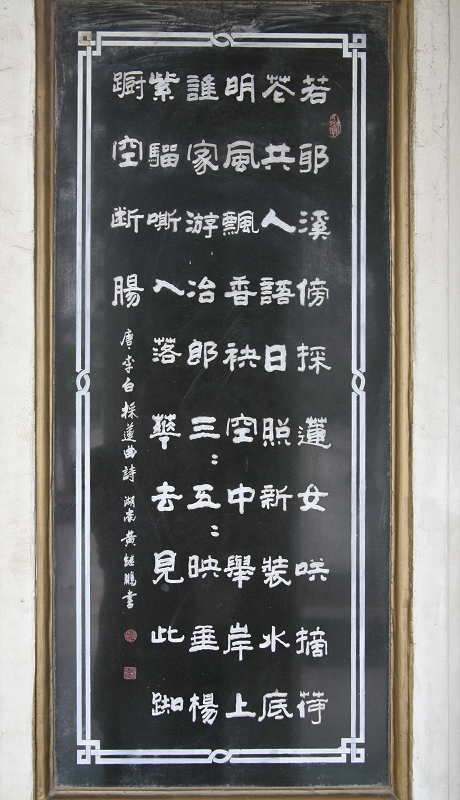 若耶溪傍採蓮女咲摘荷
芲共人語日照新裝水底
明風飄香袂空中舉岸上
誰家游冶郎三〻五〻映垂楊
紫騮嘶入落華去見此踟
蹰空断腸
唐·李白採蓮曲詩 湖南黄继鵬書